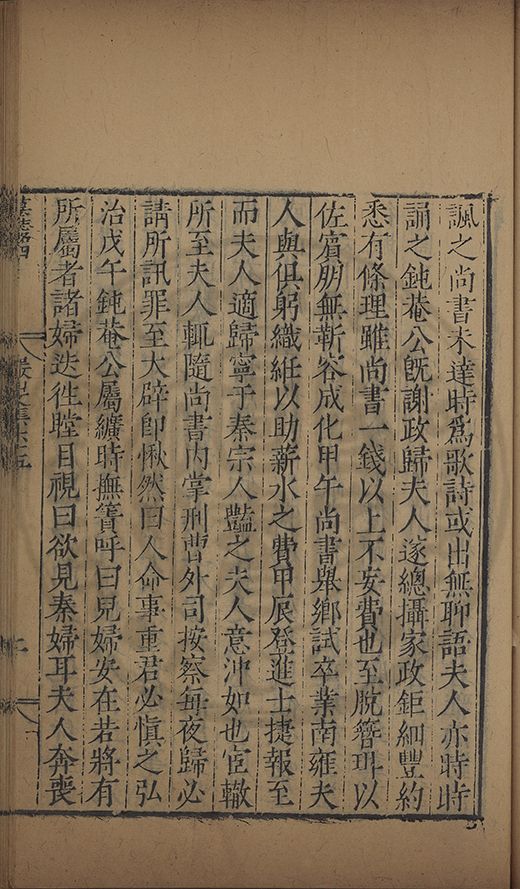 諷之尚書未達時爲歌詩或出無聊語夫人亦時時
誦之鈍菴公旣謝政歸夫人遂總攝家政鉅細豐約
悉有條理雖尚書一錢以上不妄費也至脫簪珥以
佐賓朋無靳容成化甲午尚書舉鄉試卒業南雍夫
人與俱躬織紝以助薪水之費甲辰登進士捷報至
而夫人適歸寧于秦宗人豔之夫人意沖如也宦轍
所至夫人輒隨尚書內掌刑曹外司按察每夜歸必
請所訊罪至大辟卽愀然曰人命事重君必慎之弘
治戊午鈍菴公屬纊時撫簀呼曰兒婦安在若將有
所屬者諸婦迭徃瞠目視曰欲見秦婦耳夫人奔喪